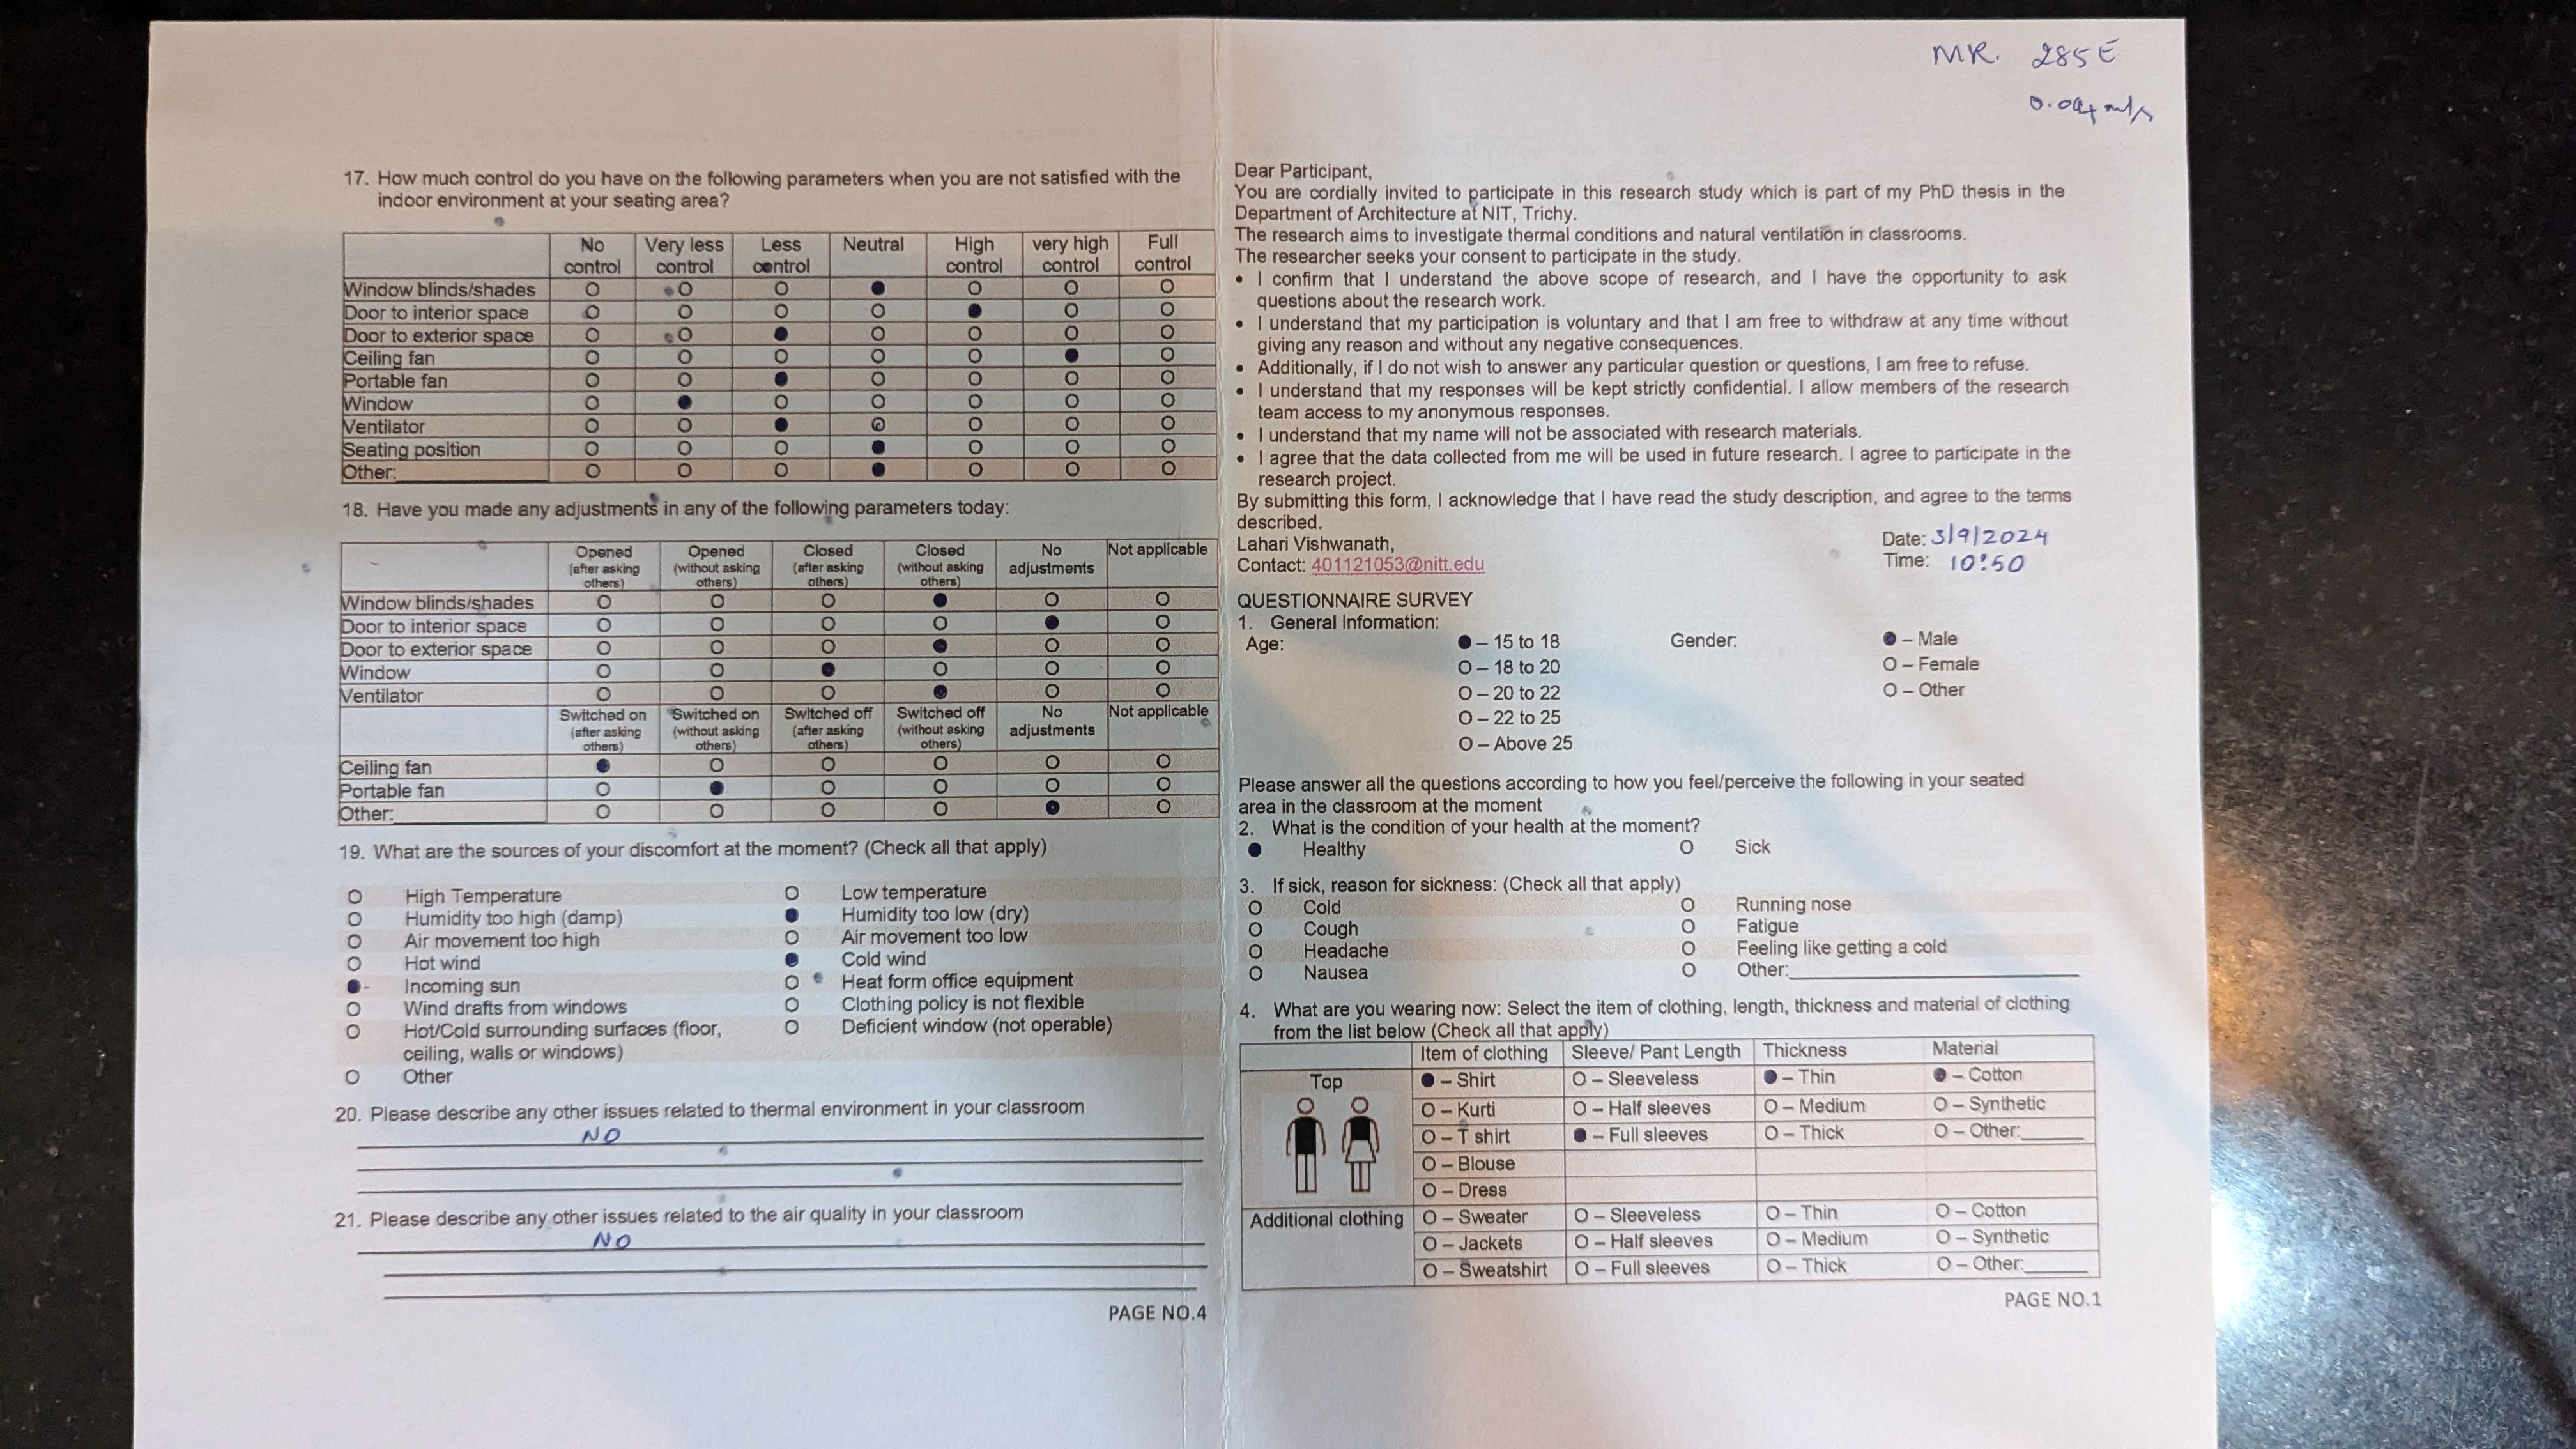 17. How much control do you have on the following parameters when you are not satisfied with the
indoor environment at your seating area?
No control Very less control Less control Neutral High control very high control Full control
Window blinds/shades O O O ● O O O
Door to interior space O O O O ● O O
Door to exterior space O O ● O O O O
Ceiling fan O O O O O ● O
Portable fan O O ● O O O O
Window O ● O O O O O
Ventilator O O ● O O O O
Seating position O O O ● O O O
Other: O O O ● O O O
18. Have you made any adjustments in any of the following parameters today:
Opened (after asking others) Opened (without asking others) Closed (after asking others) Closed (without asking others) No adjustments Not applicable
Window blinds/shades O O O ● O O
Door to interior space O O O O ● O
Door to exterior space O O O ● O O
Window O O ● O O O
Ventilator O O O ● O O
Switched on (after asking others) Switched on (without asking others) Switched off (after asking others) Switched off (without asking others) No adjustments Not applicable
Ceiling fan ● O O O O O
Portable fan O ● O O O O
Other: O O O O ● O
19. What are the sources of your discomfort at the moment? (Check all that apply)
O High Temperature O Low temperature
O Humidity too high (damp) ● Humidity too low (dry)
O Air movement too high O Air movement too low
O Hot wind ● Cold wind
● Incoming sun O Heat form office equipment
O Wind drafts from windows O Clothing policy is not flexible
O Hot/Cold surrounding surfaces (floor, O Deficient window (not operable)
ceiling, walls or windows)
O Other
20. Please describe any other issues related to thermal environment in your classroom
NO
21. Please describe any other issues related to the air quality in your classroom
NO
PAGE NO.4
MR. 285E
Dear Participant,
You are cordially invited to participate in this research study which is part of my PhD thesis in the
Department of Architecture at NIT, Trichy.
The research aims to investigate thermal conditions and natural ventilation in classrooms.
The researcher seeks your consent to participate in the study.
• I confirm that I understand the above scope of research, and I have the opportunity to ask
questions about the research work.
• I understand that my participation is voluntary and that I am free to withdraw at any time without
giving any reason and without any negative consequences.
• Additionally, if I do not wish to answer any particular question or questions, I am free to refuse.
• I understand that my responses will be kept strictly confidential. I allow members of the research
team access to my anonymous responses.
• I understand that my name will not be associated with research materials.
• I agree that the data collected from me will be used in future research. I agree to participate in the
research project.
By submitting this form, I acknowledge that I have read the study description, and agree to the terms
described.
Date: 3/9/2024
Lahari Vishwanath,
Contact: 401121053@nitt.edu Time: 10:50
QUESTIONNAIRE SURVEY
1. General Information:
Age: ● – 15 to 18 Gender: ● – Male
O – 18 to 20 O – Female
O – 20 to 22 O – Other
O – 22 to 25
O – Above 25
Please answer all the questions according to how you feel/perceive the following in your seated
area in the classroom at the moment
2. What is the condition of your health at the moment?
● Healthy O Sick
3. If sick, reason for sickness: (Check all that apply)
O Cold O Running nose
O Cough O Fatigue
O Headache O Feeling like getting a cold
O Nausea O Other:
4. What are you wearing now: Select the item of clothing, length, thickness and material of clothing
from the list below (Check all that apply)
Item of clothing Sleeve/ Pant Length Thickness Material
Top ● – Shirt O – Sleeveless ● – Thin ● – Cotton
O – Kurti O – Half sleeves O – Medium O – Synthetic
O – T shirt ● – Full sleeves O – Thick O – Other:
O – Blouse
O – Dress
Additional clothing O – Sweater O – Sleeveless O – Thin O – Cotton
O – Jackets O – Half sleeves O – Medium O – Synthetic
O – Sweatshirt O – Full sleeves O – Thick O – Other:
PAGE NO.1